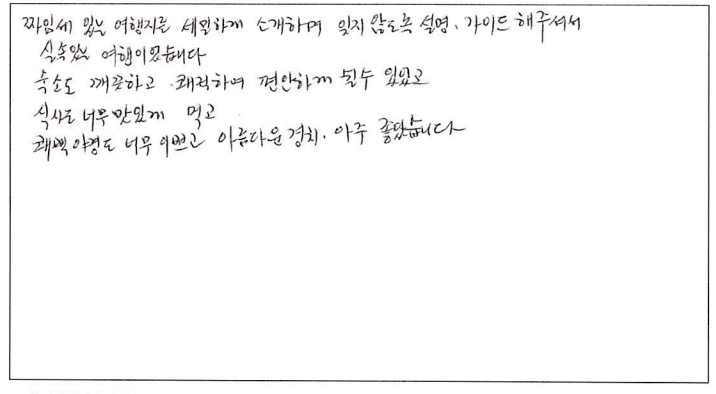 짜임세 있는 여행지를 세밀하게 소개하며 잊지 않도록 설명, 가이드 해주셔서
실속있는 여행이었습니다
숙소도 깨끗하고 쾌적하며 편안하게 쉴수 있었고
식사도 너무 맛있게 먹고
퀘백 야경도 너무 이쁘고 아름다운 경치, 아주 좋았습니다